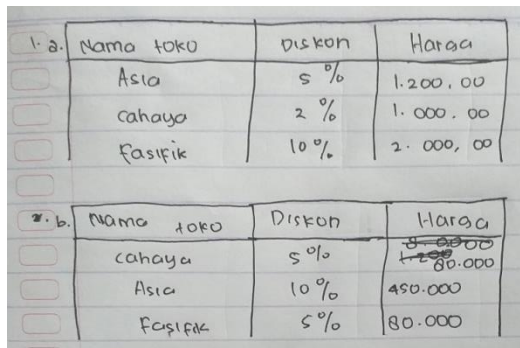 1. a. Nama toko Diskon Harga
Asia 5 % 1.200.00
cahaya 2 % 1.000.00
Fasifik 10 % 2.000,00
b. Nama toko Diskon Harga
cahaya 5 % 80.000
Asia 10 % 450.000
Fasifik 5 % 80.000